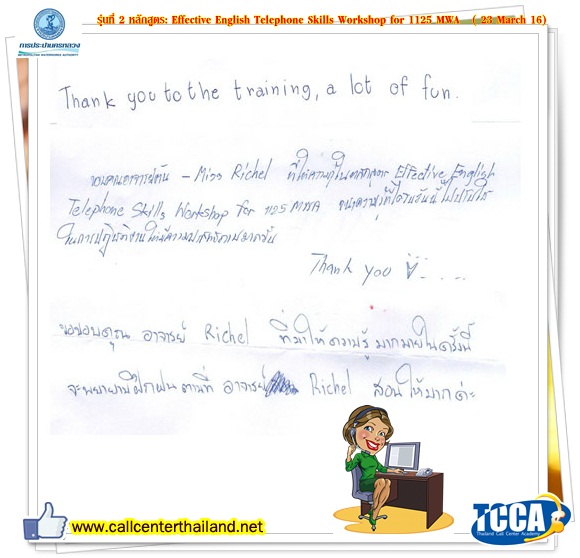 รุ่นที่ 2 หลักสูตร: Effective English Telephone Skills Workshop for 1125 MWA ( 23 March 16)
การประปานครหลวง
METROPOLITAN WATERWORKS AUTHORITY
Thank you to the training, a lot of fun.
ขอบคุณอาจารย์ - Miss Richel ที่ให้ความรู้ในหลักสูตร Effective English
Telephone Skills Workshop for 1125 MWA จะนำความรู้ที่ได้ในวันนี้ไปปรับใช้
ในการปฏิบัติงานให้มีความมากขึ้น
Thank you
ขอขอบคุณ อาจารย์ Richel ที่มาให้ความรู้ มากมายในครั้งนี้
จะพยายามฝึกฝน ตามที่ อาจารย์ Richel สอนให้มากค่ะ
www.callcenterthailand.net
TCCA
Thailand Call Center Academy